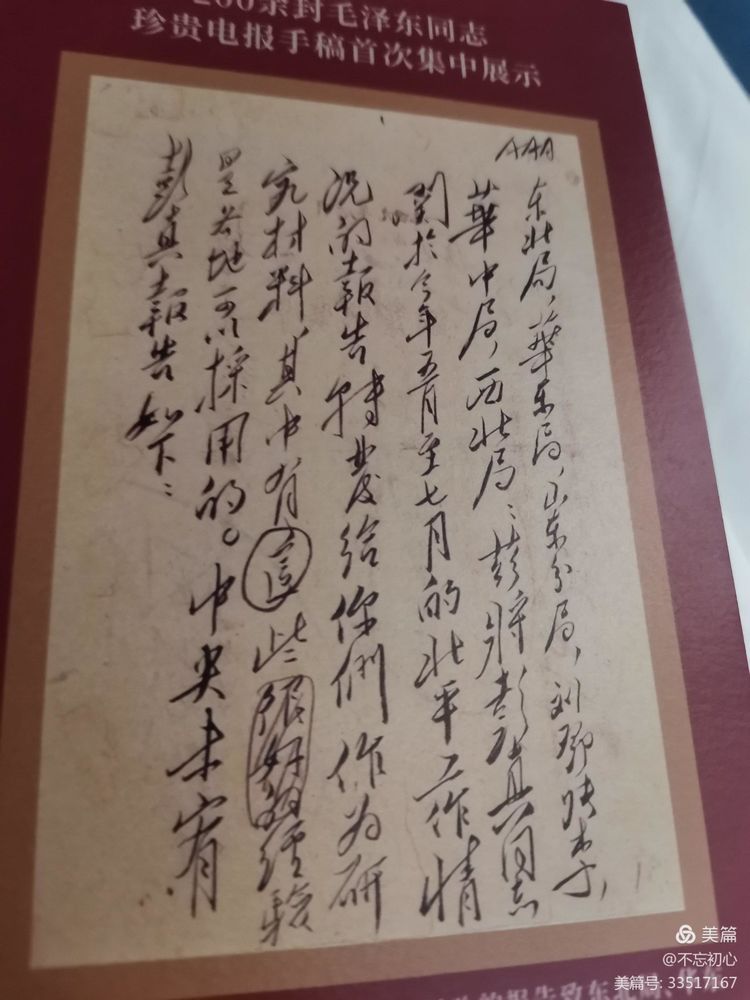 200余封毛泽东同志
珍贵电报手稿首次集中展示
AAA
东北局，華东局，山东分局，刘邓张李，
華中局，西北局：兹将彭真同志
関於今年五月至七月的北平工作情
况的報告轉发给你們作为研
究材料，其中有這些很好的经験
是各地可以採用的。中央未宥
彭真報告如下：
的报告致东
美篇
@不忘初心
美篇号: 33517167